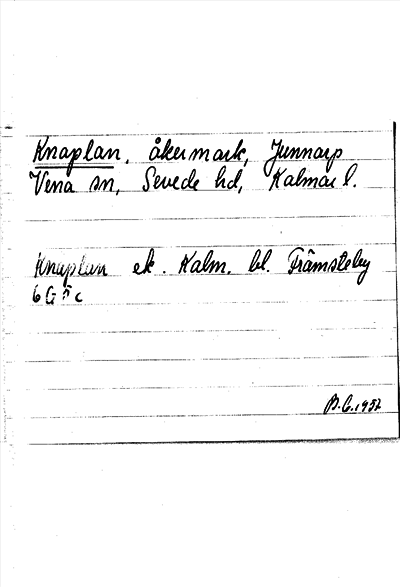 Knaplan, åkermark, Junnarp
Vena sn, Sevede hd, Kalmar l.
Knaplan ek. Kalm. bl. Främsteby
6G 5c
B.G. 1957